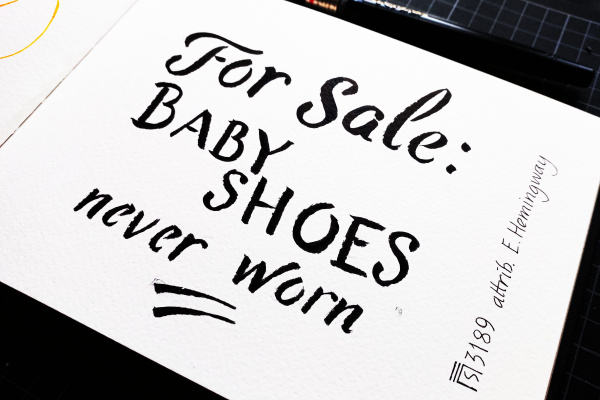 For Sale:
BABY
SHOES
never worn
3189 attrib. E. Hemingway